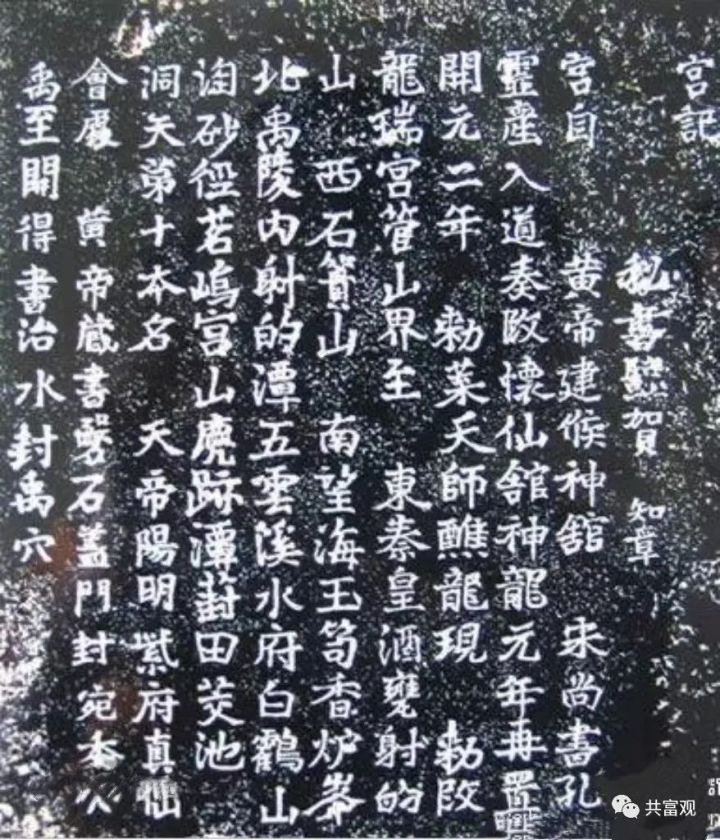 宮記
秘書監賀 知章
宮自 黃帝建候神舘 宋尚書孔
靈產入道奏改懷仙舘神龍元年再置
開元二年 勑葉天師醮龍現 勑改
龍瑞宮管山界至 東秦皇酒甕射的
山 西石簣山 南望海玉笥香炉峯
北禹陵内射的潭五雲溪水府白鶴山
淘砂徑茗塢宮山鹿跡潭葑田茭池
洞天第十本名 天帝陽明紫府真仙
會處 黃帝藏書磐石盖門封宛委穴
禹至開得書治水封禹穴
共富观